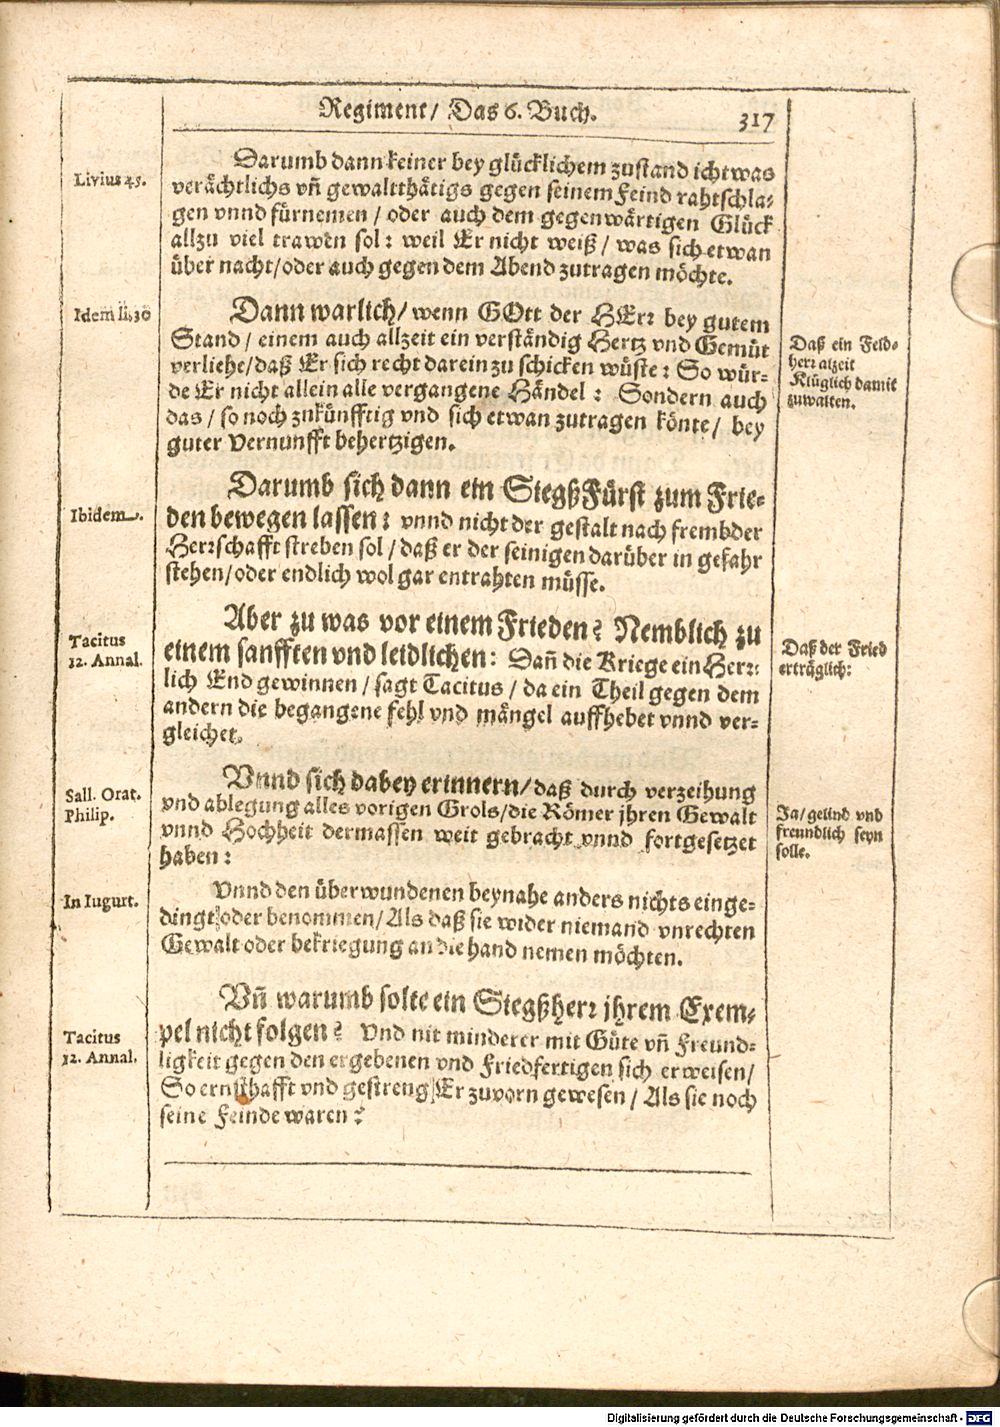 Regiment/ Das 6. Buch.
317
Livius 45.
Darumb dann keiner bey glücklichem zustand ichtwas
verächtlichs vñ gewaltthätigs gegen seinem Feind rahtschla-
gen vnnd fürnemen / oder auch dem gegenwärtigen Glück
allzu viel trawen sol: weil Er nicht weiß / was sich etwan
über nacht/oder auch gegen dem Abend zutragen möchte.
Idem li. 30
Dann warlich/ wenn GOtt der HErr bey gutem
Stand / einem auch allzeit ein verständig Hertz vnd Gemüt
verliehe/daß Er sich recht darein zu schicken wüste: So wür-
de Er nicht allein alle vergangene Händel: Sondern auch
das / so noch zukünfftig vnd sich etwan zutragen könte/ bey
guter Vernunfft behertzigen.
Daß ein Feld-
herr alzeit
Klüglich damit
zuwalten.
Ibidem.
Darumb sich dann ein SiegßFürst zum Frie-
den bewegen lassen: vnnd nicht der gestalt nach frembder
Herrschafft streben sol / daß er der seinigen darüber in gefahr
stehen/oder endlich wol gar entrahten müsse.
Tacitus
12. Annal.
Aber zu was vor einem Frieden? Nemblich zu
einem sanfften vnd leidlichen: Dañ die Kriege ein Herr-
lich End gewinnen / sagt Tacitus / da ein Theil gegen dem
andern die begangene fehl vnd mängel auffhebet vnnd ver-
gleichet.
Daß der Fried
erträglich:
Sall. Orat.
Philip.
Vnnd sich dabey erinnern/daß durch verzeihung
vnd ablegung alles vorigen Grols/die Römer jhren Gewalt
vnnd Hochheit dermassen weit gebracht vnnd fortgesetzet
haben:
Ja/ gelind vnd
freundlich seyn
solle.
In Iugurt.
Vnnd den überwundenen beynahe anders nichts einge-
dingt/oder benommen/Als daß sie wider niemand vnrechten
Gewalt oder bekriegung an die hand nemen möchten.
Tacitus
12. Annal.
Vñ warumb solte ein Siegßherr jhrem Exem-
pel nicht folgen? Vnd nit minderer mit Güte vñ Freund-
ligkeit gegen den ergebenen vnd Friedfertigen sich erweisen/
So ernsthafft vnd gestreng Er zuvorn gewesen / Als sie noch
seine Feinde waren?
Digitalisierung gefördert durch die Deutsche Forschungsgemeinschaft - DFG